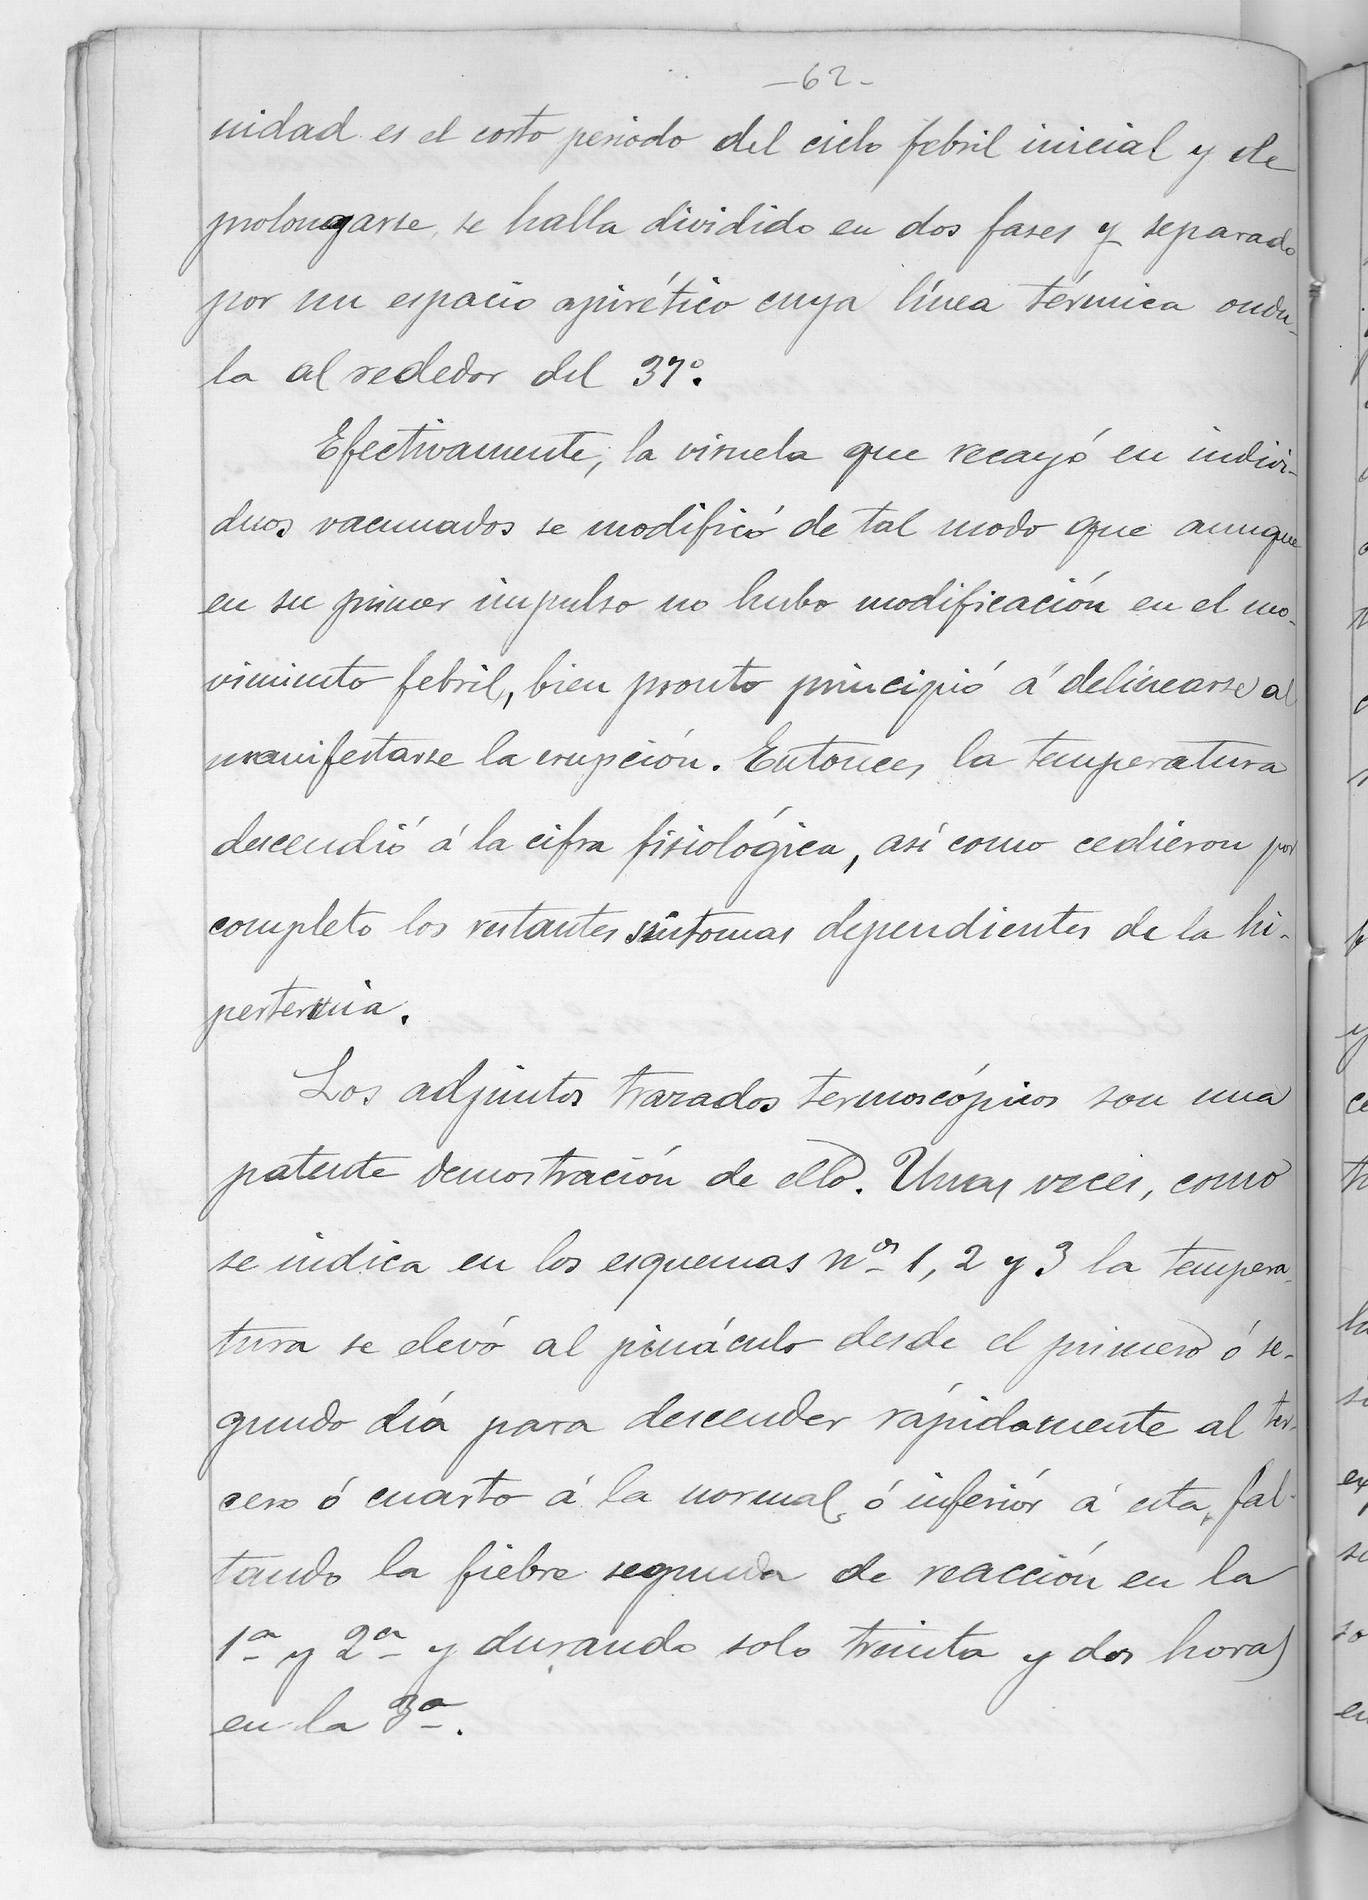 -62-
nidad es el corto periodo del ciclo febril inicial y de
prolongarse, se halla dividido en dos fases y separado
por un espacio apirético cuya línea térmica ondu-
la al rededor del 37º.
Efectivamente, la viruela que recayó en indivi-
duos vacunados se modificó de tal modo que aunque
en su primer impulso no hubo modificación en el mo-
vimiento febril, bien pronto principió á delinearse al
manifestarse la erupción. Entonces la temperatura
descendió á la cifra fisiológica, así como cedieron por
completo los restantes síntomas dependientes de la hi-
pertermia.
Los adjuntos trazados termoscópicos son una
patente demostración de ello. Unas veces, como
se indica en los esquemas nos 1, 2 y 3 la tempera-
tura se elevó al pináculo desde el primero ó se-
gundo día para descender rápidamente al ter-
cero ó cuarto á la normal, ó inferiór á esta, fal-
tando la fiebre segunda de reacción en la
1ª y 2ª y durando solo treinta y dos horas
en la 3ª.